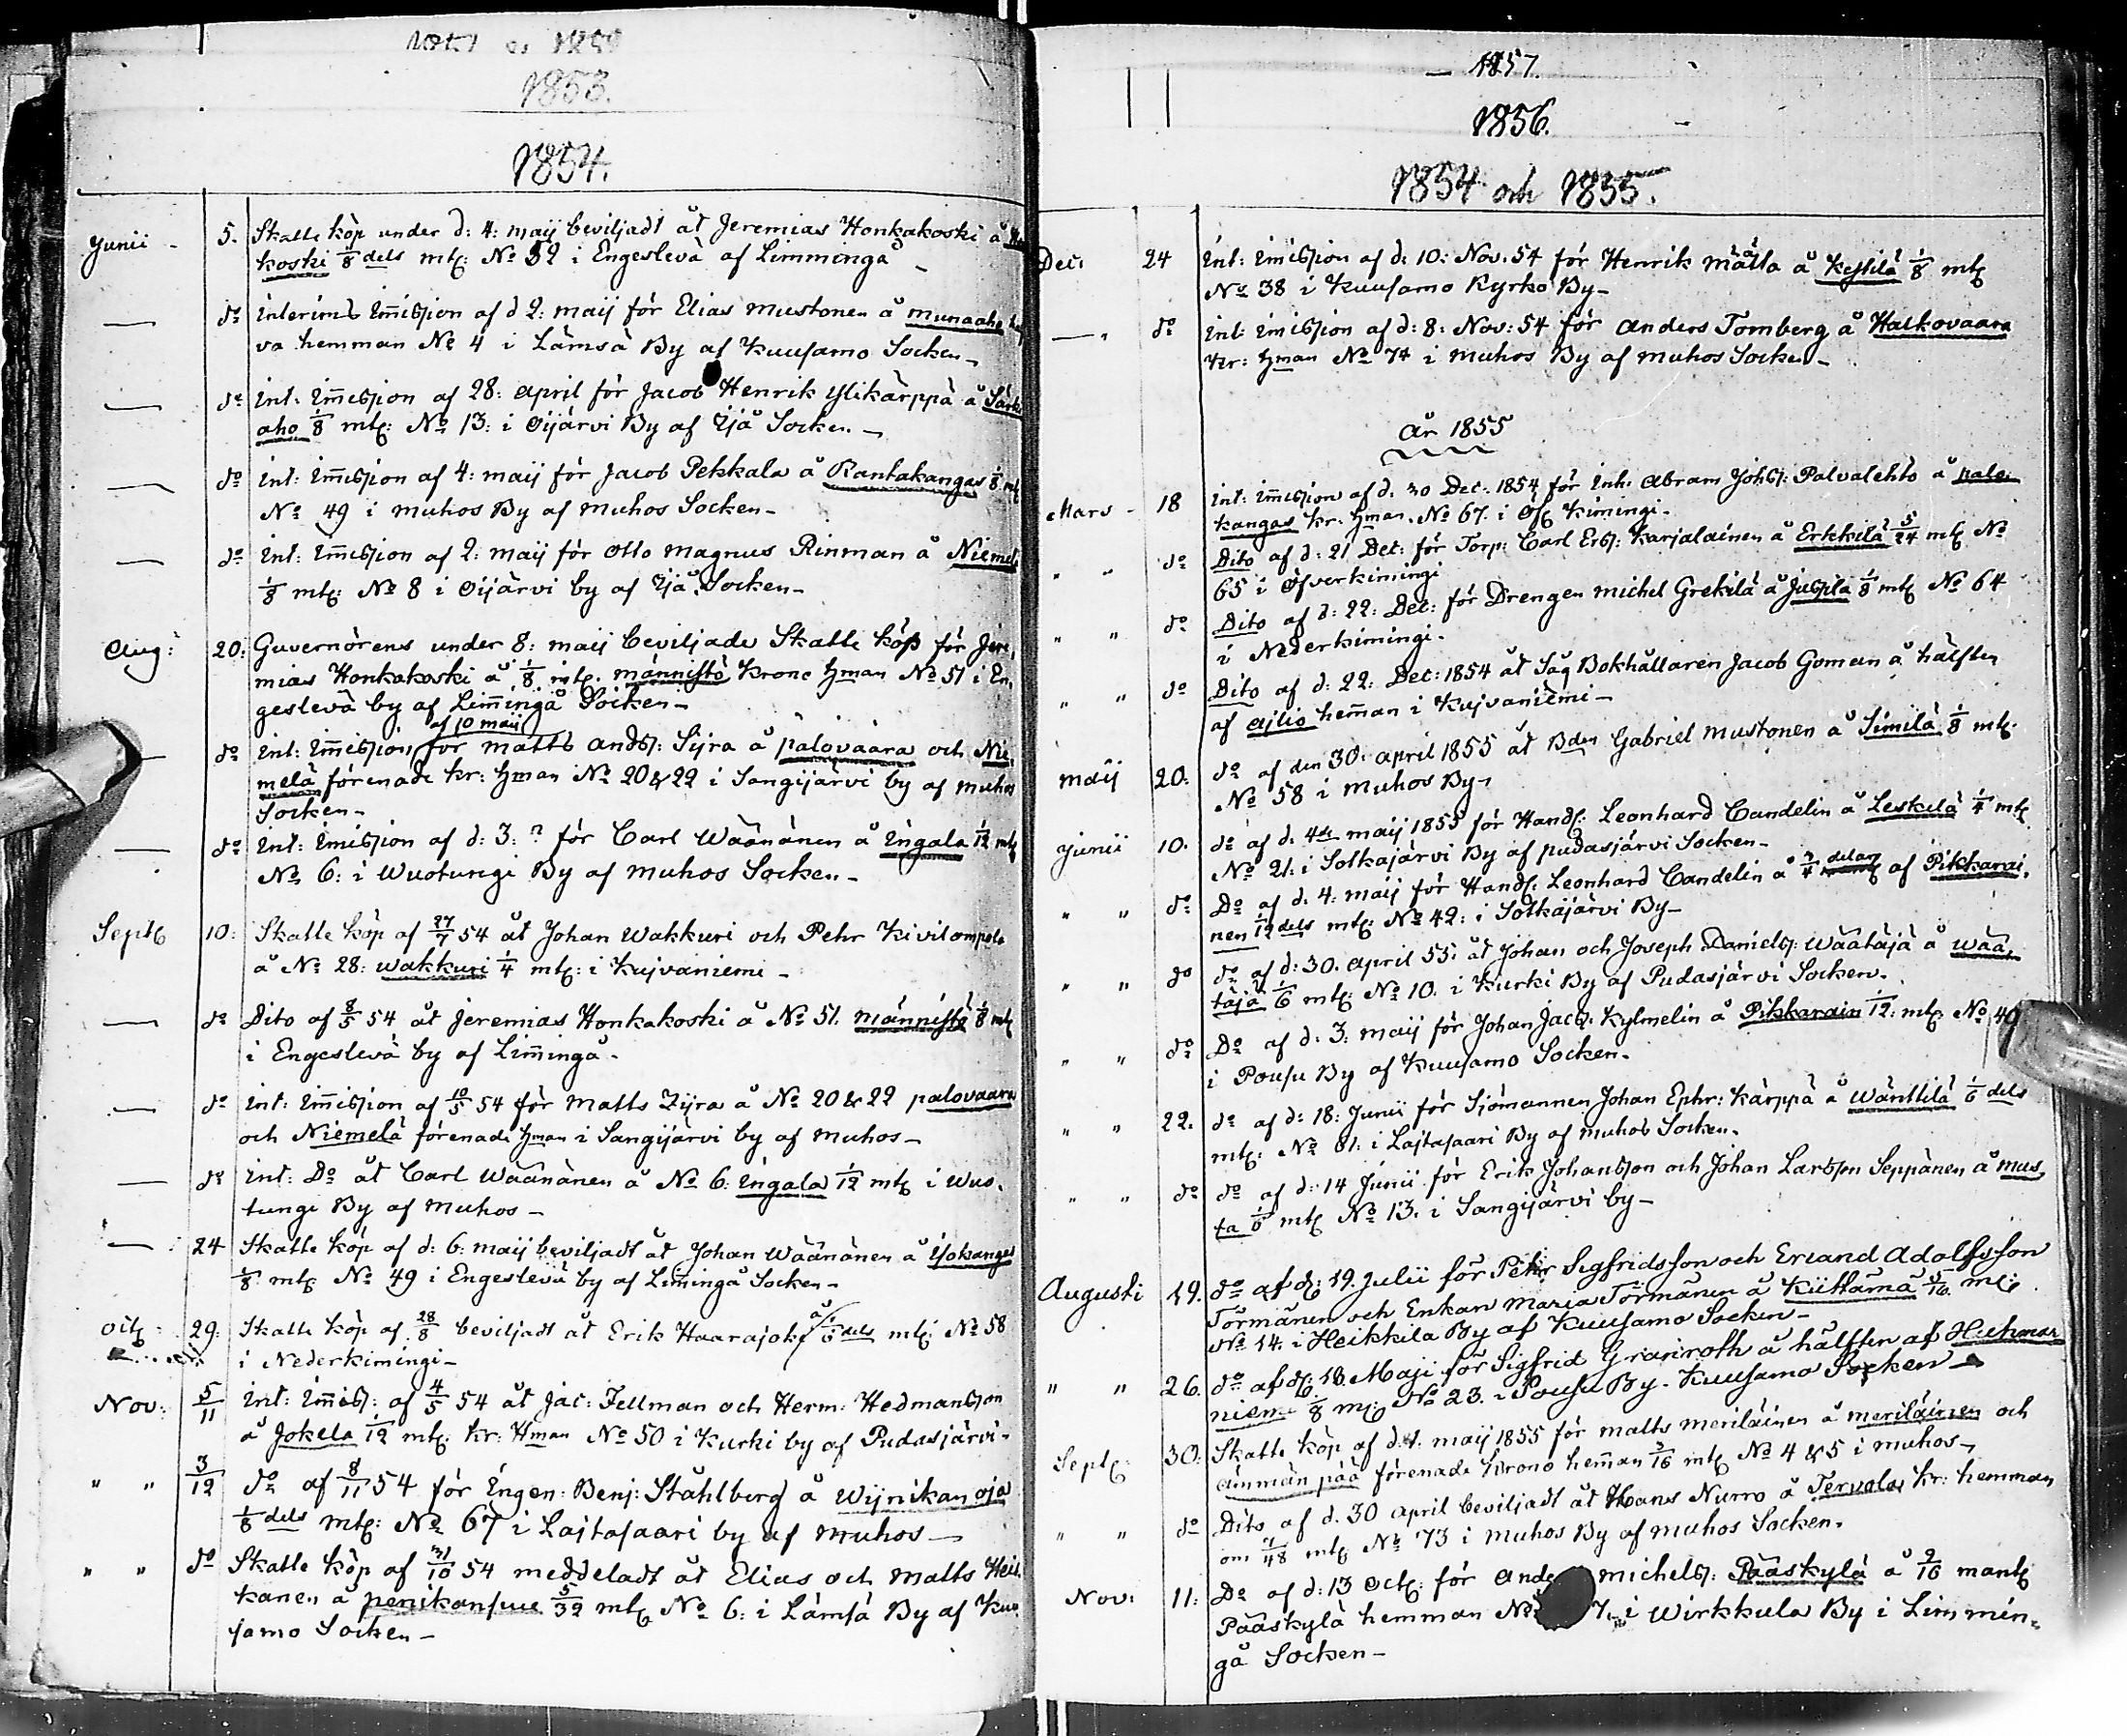 1853.
1854.
Junii - 5. Skatte köp under d: 4: maij beviljadt åt Jeremias Honkakoski å
koski 1/8 dels mtl: No 52 i Engeslevä af Limminga -
— do interims Immission af d 2: maij för Elias Mustonen å Munaaho
va hemman No 4 i Lämsä By af Kuusamo Socken -
— do Int: Immission af 28: april för Jacob Henrik Ylikärppä å Särki
aho 1/8 mtl: No 13: i Oijärvi By af Ijå Socken. -
— do Int: Immission af 4: maij för Jacob Pekkala å Rantakangas 1/8 mtl
No 49 i Muhos By af Muhos Socken -
— do Int: Immission af 2: maij för Otto Magnus Rinman å Niemelä
1/8 mtl: No 8 i Oijärvi by af Ijå Socken -
Aug: 20: Guvernörens under 8: maij beviljade Skatte köp för Jere,
mias Honkakoski å 1/8 mtl. Männistö Krono Hman No 51 i En,
geslevä by af Limminga Socken -
af 10 maij
— do Int: Immission för Matts Andss: Sijra å Palovaara och Nie,
melä förenade Kr: Hman No 20 & 22 i Sangijärvi by af Muhos
Socken -
— do Int: Imission af d: 3: ? för Carl Wäänänen å Ingala 1/12 mtl
No 6: i Wuotungi By af Muhos Socken -
Septb 10: Skatte köp af 27/7 54 åt Johan Wakkuri och Pehr Kivilompolo
å No 28: Wakkuri 1/4 mtl: i Kujvaniemi -
— do Dito af 8/5 54 åt Jeremias Honkakoski å No 51. Männistö 1/8 mtl
i Engeslevä by af Limmingå -
— do Int: Immission af 10/5 54 för Matts Zijra å No 20 & 22 Palovaara
och Niemelä förenade Hman i Sangijärvi by af Muhos -
— do Int: Do åt Carl Wäänänen å No 6: Ingala 1/12 mtl i Wuo,
tungi By af Muhos -
— 24 Skatte köp af d: 6: maij beviljadt åt Johan Wäänänen å Ijokangas
1/8 mtl No 49 i Engeslevä by af Limmingå Socken -
Octb 29: Skatte köp af 28/8 beviljadt åt Erik Haarajoki å 1/6 dels mtl: No 58
i Nederkimingi -
Nov: 5/11 Int: Immiss: af 4/5 54 åt Jac: Fellman och Herm: Hedmansson
å Jokela 1/12 mtl: Kr: Hman No 50 i Kurki by af Pudasjärvi -
" " 3/12 do af 8/11 54 för Ingen: Benj: Ståhlberg å Wijnikanoja
1/8 dels mtl: No 67 i Lajtasaari by af Muhos -
" " do Skatte köp af 31/10 54 meddeladt åt Elias och Matts Heis,
kanen å Penikansuu 5/32 mtl No 6: i Lämsä By af Kuu
samo Socken -
1857.
1856.
1854 och 1855.
Dec: 24 Int: Imission af d: 10: Nov: 54 för Henrik Määtta å Kestilä 1/8 mtl
No 38 i Kuusamo Kyrko By -
— do Int: Imission af d: 8: Nov: 54 för Anders Tomberg å Halkovaara
Kr: Hman No 74 i Muhos By af Muhos Socken -
År 1855
Mars - 18 Int: Immission af d: 30 Dec: 1854 för Inh: Abram Johss: Palvalehto å Palo
kangas Kr: Hman. No 67. i Öf: Kimingi -
" " do Dito af d: 21 Dec: för Torp: Carl Erss: Karjalainen å Erkkilä 5/24 mtl No
65 i Öfverkimingi
" " do Dito af d: 22: Dec: för Drengen Michel Grekilä å Juspila 1/8 mtl No 64
i Nederkimingi -
" do Dito af d: 22: Dec: 1854 åt Såg Bokhållaren Jacob Goman å hälften
af Ajlio hemman i Kujvaniemi -
Maij 20: do af den 30: april 1855 åt Bden Gabriel Mustonen å Similä 1/8 mtl.
No 58 i Muhos By -
Junii 10. do af d: 4de maij 1855 för Handl: Leonhard Candelin å Leskelä 1/4 mtl
No 21: i Sotkajärvi By af Pudasjärvi Socken -
" " do Do af d: 4: maij för Handl: Leonhard Candelin å 3/4 delar af Pikkarai,
nen 1/12 dels mtl: No 42: i Sotkajärvi By -
" " do do af d: 30. april 55: åt Johan och Joseph Danielss: Wäätäjä å Wää,
täjä 1/6 mtl: No 10. i Kurki By af Pudasjärvi Socken.
" " do Do af d: 3: maij för Johan Jacss: Kylmelin å Pikkarain 1/12: mtl: No 40
i Pousu By af Kuusamo Socken.
" " 22. do af d: 18: Junii för Sjömannen Johan Ephr: Kärppä å Wänttilä 1/6 dels
mtl: No 81: i Lajtasaari By af Muhos Socken.
" " do do af d: 14 Junii för Erik Johansson och Johan Larsson Seppänen å Mus,
ta 1/6 mtl No 13. i Sangijärvi by -
Augusti 19. do af d: 19. Julii för Petter Sigfridsson och Erland Adolfsson
Törmänen och Enkan Maria Törmänen å Kiittämä 5/16 mtl:
No 14. i Heikkila By af Kuusamo Socken -
" " 26. do af d: 18. Maji för Sigfrid Granroth å hälften af Huhmar
niemi 1/8 mtl: No 23. i Pousu By. Kuusamo Socken -
Septb: 30: Skatte köp af d: 1. maij 1855 för Matts Meriläinen å Meriläinen och
Ämmänpää förenade Krono hemman 3/16 mtl No 4 & 5 i Muhos -
" " do Dito af d. 30 april beviljadt åt Hans Nurro å Tervola Kr: hemman
om 7/48 mtl No 73 i Muhos By af Muhos Socken.
Nov: 11: Do af d: 13 Octb: för Ande Michelss: Pääskylä å 9/16 mantl
Pääskylä hemman No 7. i Wirkkula By i Limmin,
gå Socken -